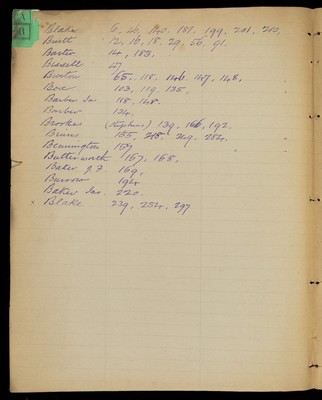 Blake 6, 26, 140, 181, 199, 201, 210,
Burtt 12, 16, 18, 29, 56, 91.
Baxter 14, 183,
Bissell 47
Burton 65, 118, 146, 147, 148,
Box 103, 119, 135,
Barber Jas 118, 148
Barber 134
Brooks (Hopkins) 139, 166, 192
Brims 155, 218, 249, 252,
Bennington 159
Butterworth 167, 168,
Baker J. F. 169,
Burrows 194
Baker Jas. 220.
x Blake 239, 254, 297